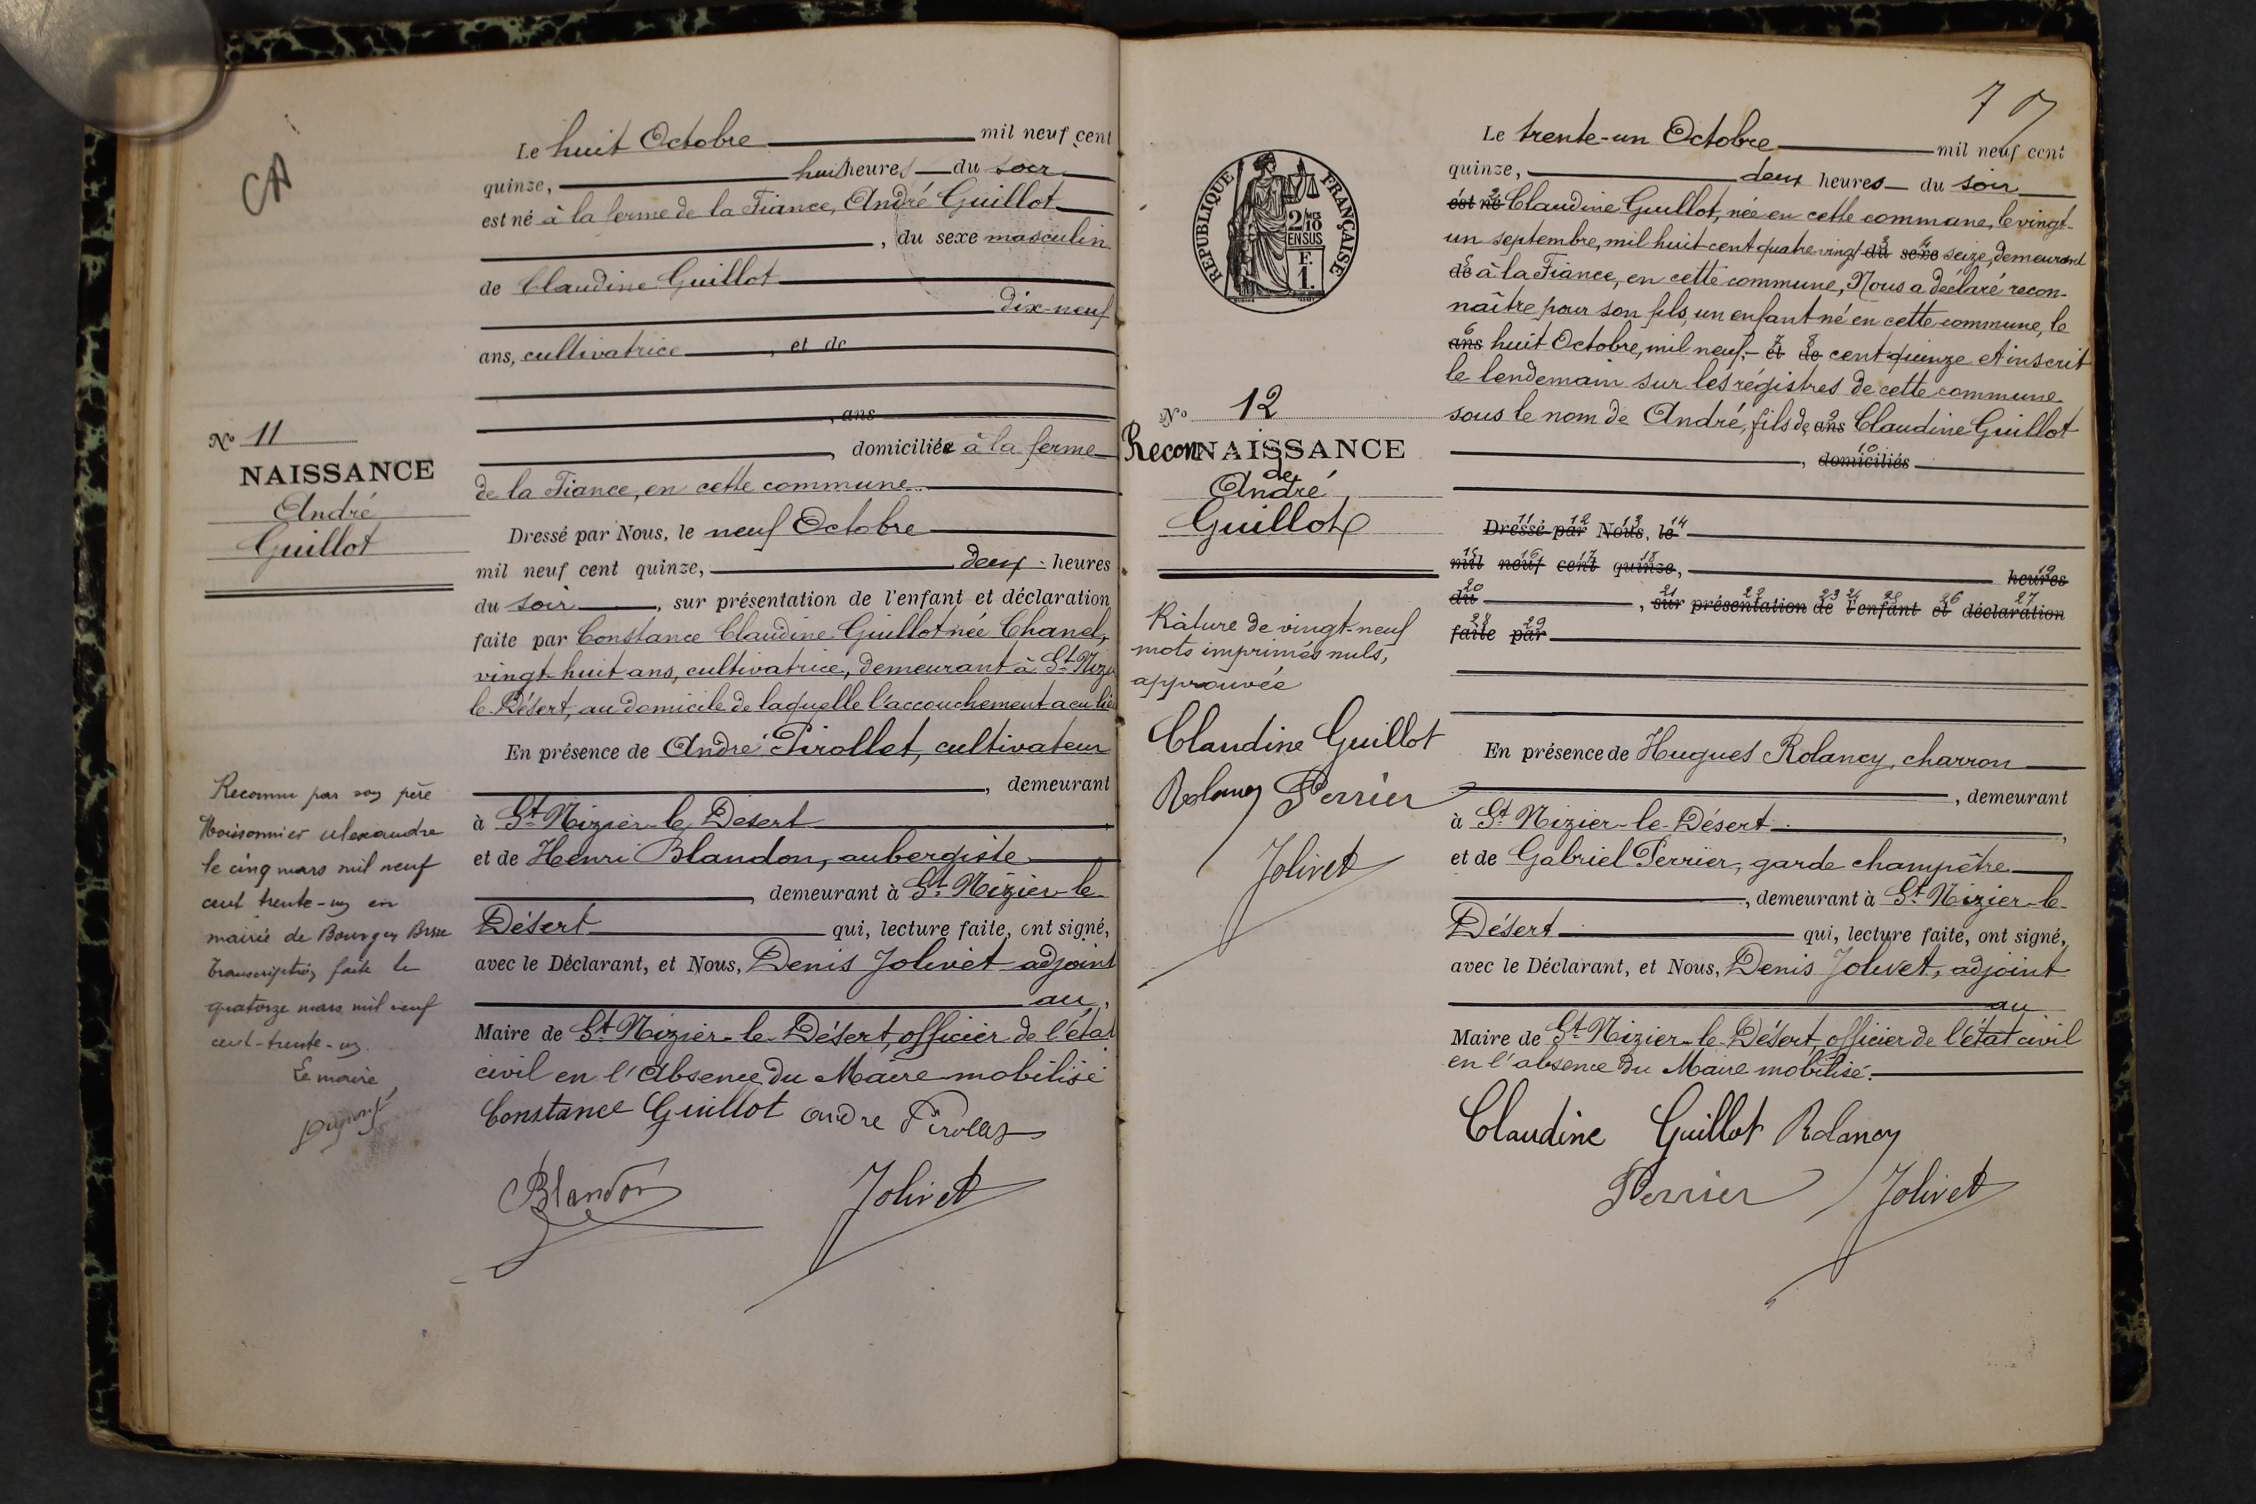 CA
Le huit Octobre mil neuf cent
quinze, huit heures du soir
est né à la ferme de la Fiance, André Guillot
, du sexe masculin
de Claudine Guillot
dix-neuf
ans, cultivatrice, et de
, ans
, domiciliée à la ferme
de la Fiance, en cette commune.
Dressé par Nous, le neuf Octobre
mil neuf cent quinze, deux heures
du soir, sur présentation de l'enfant et déclaration
faite par Constance Claudine Guillot née Chanel,
vingt-huit ans, cultivatrice, demeurant à St Nizier
le-Désert, au domicile de laquelle l'accouchement a eu lieu
En présence de André Pirollet, cultivateur
, demeurant
à St Nizier-le-Désert,
et de Henri Blandon, aubergiste
, demeurant à St Nizier-le-
Désert qui, lecture faite, ont signé,
avec le Déclarant, et Nous, Denis Jolivet adjoint
au,
Maire de St Nizier-le-Désert, officier de l'état
civil en l'absence du Maire mobilisé
Constance Guillot andre Pirollet
Blandon Jolivet
No 11
NAISSANCE
André
Guillot
Reconnu par son père
Moissonnier Alexandre
le cinq mars mil neuf
cent trente-un en
mairie de Bourg en Bresse
Transcription faite le
quatorze mars mil neuf
cent-trente-un.
Le maire,
7
Le trente-un Octobre mil neuf cent
quinze, deux heures du soir
est né Claudine Guillot, née en cette commune, le vingt-
un septembre, mil huit-cent quatre-vingt du sexe seize, demeurant
de à la Fiance, en cette commune, Nous a déclaré recon-
naître pour son fils, un enfant né en cette commune, le
ans huit Octobre, mil neuf- et de cent quinze et inscrit
le lendemain sur les régistres de cette commune
sous le nom de André, fils de ans Claudine Guillot
, domiciliés
Dressé par Nous, le
mil neuf cent quinze, heures
du, sur présentation de l'enfant et déclaration
faite par
En présence de Hugues Rolancy, charron
, demeurant
à St Nizier-le-Désert,
et de Gabriel Perrier, garde champêtre
, demeurant à St Nizier-le-
Désert qui, lecture faite, ont signé,
avec le Déclarant, et Nous, Denis Jolivet, adjoint
au
Maire de St Nizier-le-Désert, officier de l'état civil
en l'absence du Maire mobilisé.
Claudine Guillot Rolancy
Perrier Jolivet
RÉPUBLIQUE FRANÇAISE
2/10
EN SUS
F.
1.
No 12
ReconNAISSANCE
de
André
Guillot
Râture de vingt-neuf
mots imprimés nuls,
approuvée
Claudine Guillot
Rolancy Perrier
Jolivet